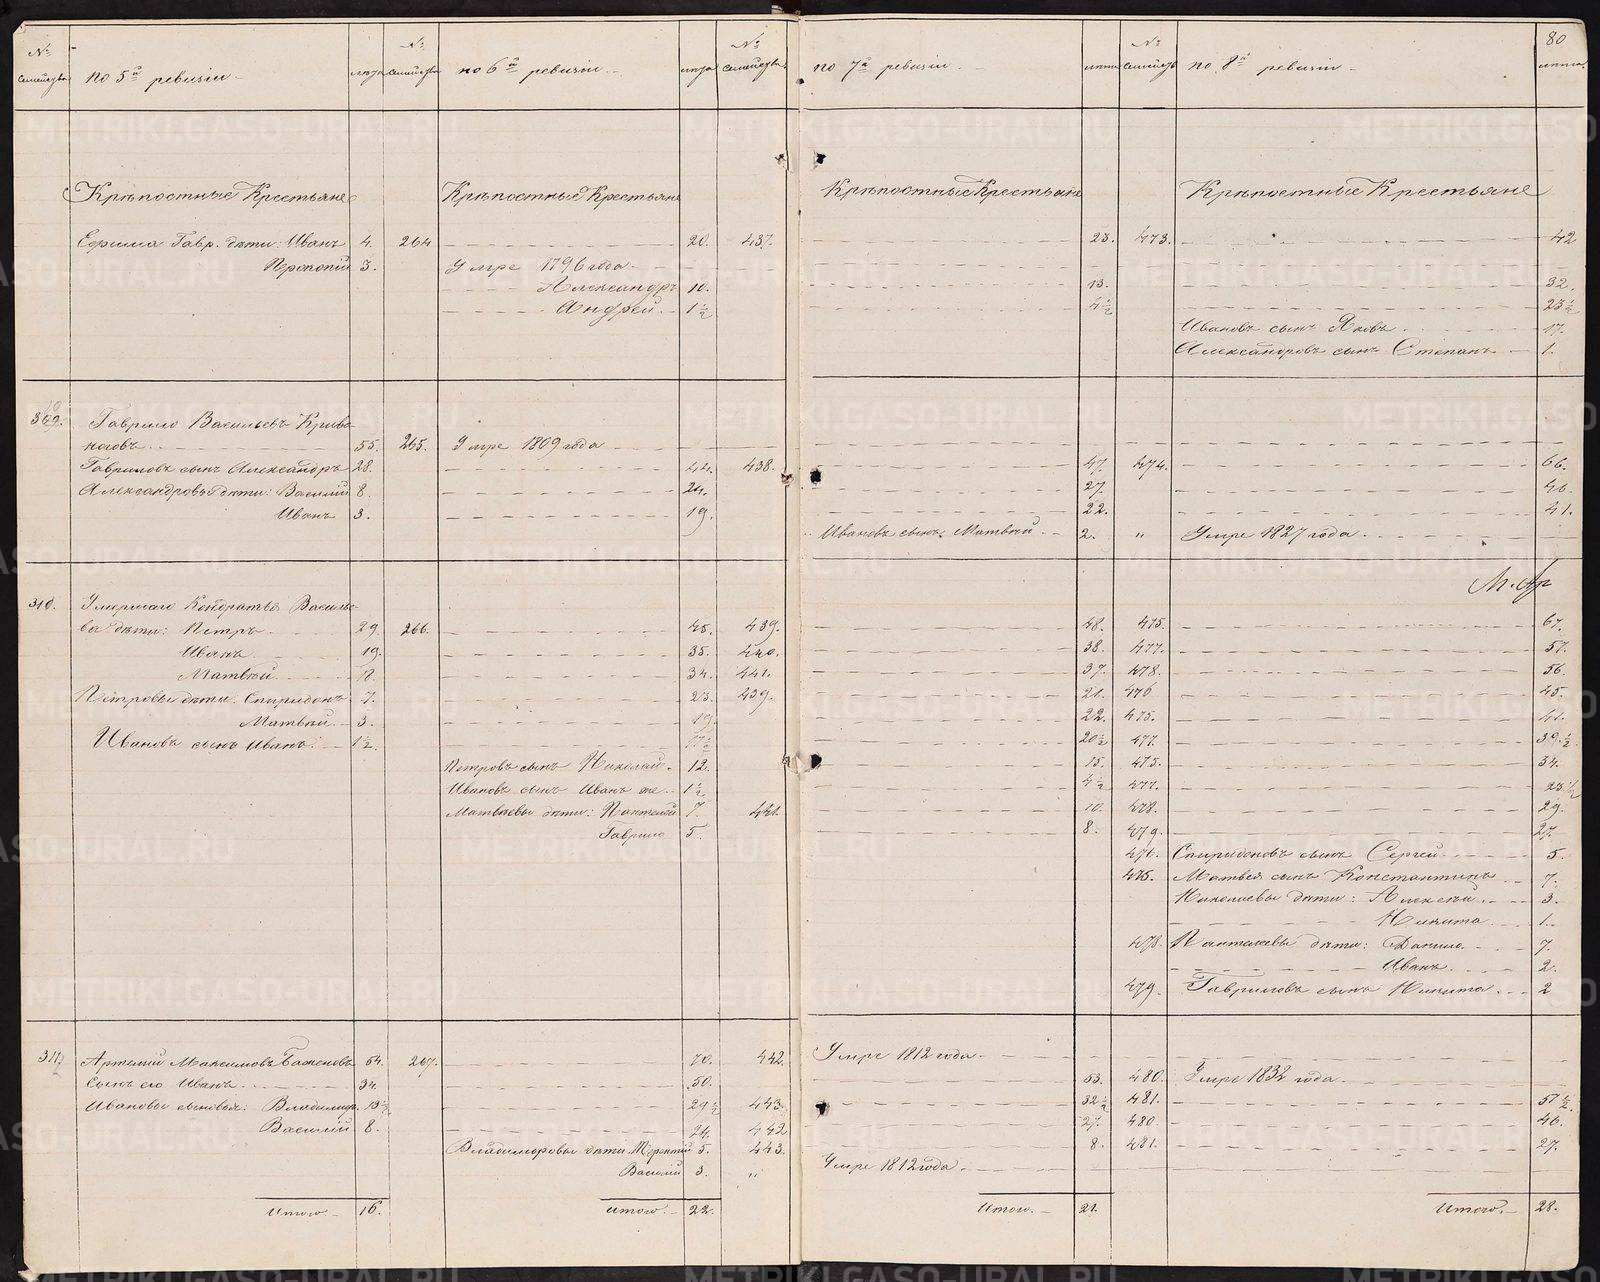 80
№ семейства по 5й ревизіи лѣта № семейства по 6й ревизіи лѣта № семейства по 7й ревизіи лѣта № семейства по 8й ревизіи лѣта
Крѣпостные Крестьяне Крѣпостные Крестьяне Крѣпостные Крестьяне Крѣпостные Крестьяне
Ефима Гавр. дѣти: Иванъ 4. 264 20. 437. 23. 473. 42
Прокопій 3. Умре 1796 года
Александръ 10. 13. 32.
Андрей 1½ 4½ 23½
Ивановъ сынъ Яковъ 17.
Александровъ сынъ Степанъ 1.
309. Гаврило Васильевъ Криво
ноговъ 55. 265. Умре 1809 года
Гавриловъ сынъ Александръ 28. 44. 438. 47. 474. 66.
Александровы дѣти: Василій 8. 24. 27. 46.
Иванъ 3. 19. 22. 41.
Ивановъ сынъ Матвѣй 2. " Умре 1827 года
310. Умершаго Кондратья Василье-
ва дѣти: Петръ 29. 266. 45. 439. 48. 475. 67.
Иванъ 19. 35. 440. 38. 477. 57.
Матвѣй 34. 441. 37. 478. 56.
Петровы дѣти: Спиридонъ 7. 23. 439. 476 45.
Матвѣй 3. 19. 22. 475. 41.
Ивановъ сынъ Иванъ 1½. 17½ 20½ 477. 39½
Петровъ сынъ Николай 12. 15. 475. 34.
Ивановъ сынъ Иванъ же 1½ 4½ 477. 23½
Матвѣевы дѣти: Пантелей 7. 441. 10. 478. 29.
Гаврило 5. 8. 479. 27.
476. Спиридоновъ сынъ Сергей 5.
475. Матвея сынъ Константинъ 7.
Николаевы дѣти: Алексѣй 3.
Никита 1.
478. Пантелевы дѣти: Данило 7.
Иванъ 2.
479. Гавриловъ сынъ Никита 2
311. Артемій Максимовъ Баженовъ 54. 267. 70. 442. Умре 1812 года
Сынъ его Иванъ 34. 50. 53. 480. Умре 1832 года
Ивановы сыновья: Владимиръ 13½ 29½ 443. 32½ 481. 57½
Василій 8. 24. 442 27. 480. 46.
Владимировы дѣти: Терентій 5. 443. 8. 481. 27.
Василій 3. " Умре 1812 года
Итого 16. Итого 22. Итого 21. Итого 28.
METRIKI.GASO-URAL.RU